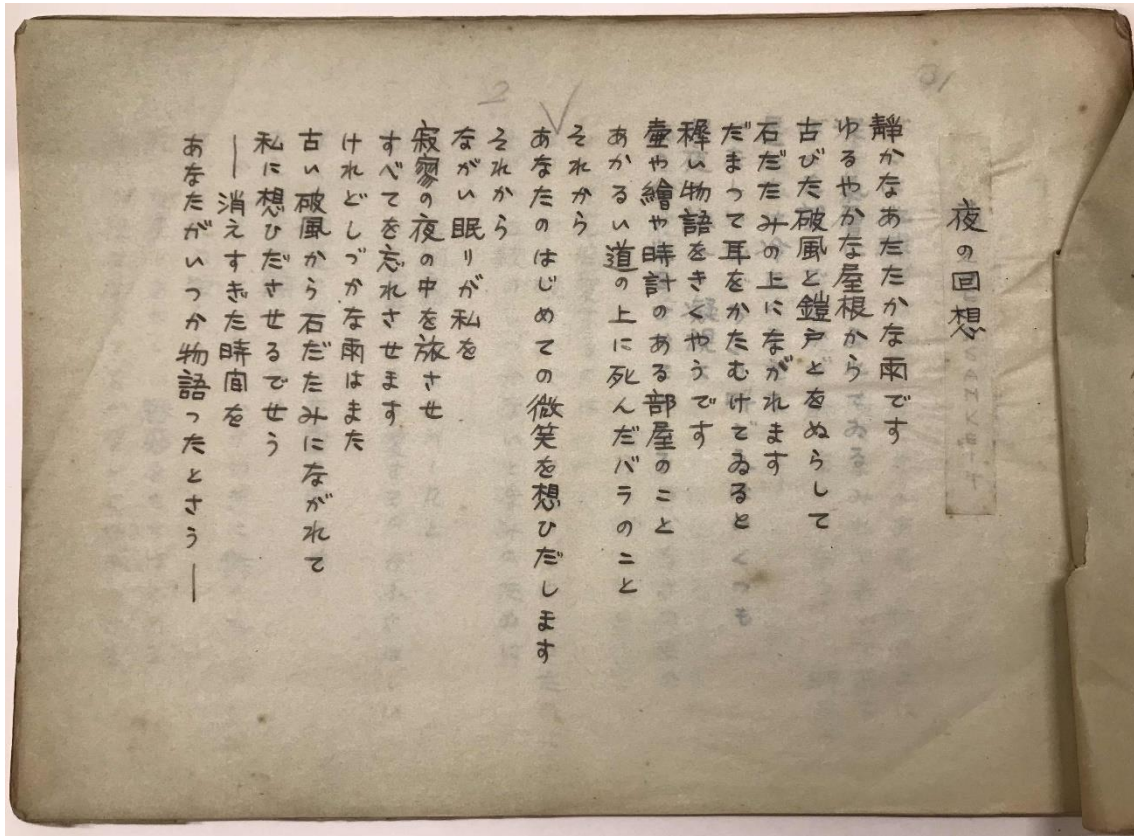 夜の回想
靜かなあたたかな雨です
ゆるやかな屋根から
古びた破風と鎧戸とをぬらして
石だたみの上にながれます
だまつて耳をかたむけてゐると
穉い物語をきくやうです
壷や繪や時計のある部屋のこと
あかるい道の上に死んだバラのこと
それから
あなたのはじめての微笑を想ひだします
それから
ながい眠りが私を
寂寥の夜の中を旅させ
すべてを忘れさせます
けれどしづかな雨はまた
古い破風から石だたみにながれて
私に想ひださせるでせう
―消えすぎた時間を
あなたがいつか物語つたとさう―
2